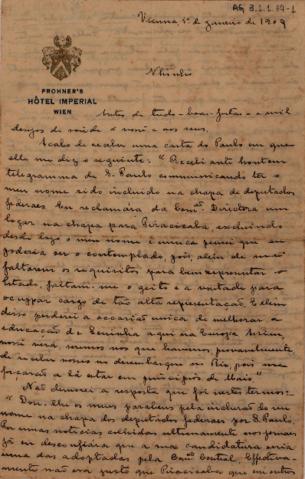 AG 3.1.1.84-1
Vienna, 1º de janeiro de 1909
FROHNER'S
HÔTEL IMPERIAL
WIEN
Antes de tudo - boas-festas - e mil
desejos de saúde a você e aos seus.
Acabo de receber uma carta do Paulo em que
elle me diz o seguinte: "Recebi ante hontem
telegramma de S. Paulo communicando ter o
meu nome sido incluido na chapa de deputados
federaes. Eu reclamára da Comão Directora um
logar na chapa para Piracicaba, excluindo
desde logo o meu nome e nunca pensei que eu
poderia ser o contemplado, pois, alem de me
faltarem os requisitos para bem representar o
Estado, faltam-me o geito e a vontade para
occupar cargo de tão alta representação. E alem
disso perderei a occasião unica de melhorar a
educação de aqui na Europa. Assim,
você verá, sermos nos que iremos, provavelmente
de receber vocês no desembarque no Rio, pois me
forçarão a lá estar em principios de Maio"
Não demorei a resposta que foi nestes termos:
"Dou-lhe os meus parabens pela inclusão do seu
nome na chapa dos deputados federaes por S. Paulo.
Por umas noticias colhidas ultimamente em jornaes
já eu desconfiára que a sua candidatura seria
uma das adoptadas pela Comão Central. Effectiva-
mente não era justo que Piracicaba que em outros